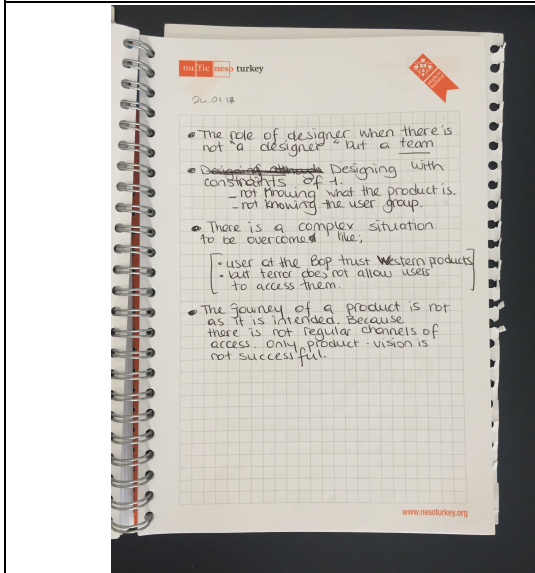 nuffic neso turkey
24.01.18
• The role of designer when there is
not "a designer" but a team
• Designing with
constraints of 1.
- not knowing what the product is.
- not knowing the user group.
• There is a complex situation
to be overcomed like;
[ • user at the Bop trust Western products
• but terror does not allow users
to access them. ]
• The journey of a product is not
as it is intended. Because
there is not regular channels of
access. Only product - vision is
not successful.
www.nesoturkey.org